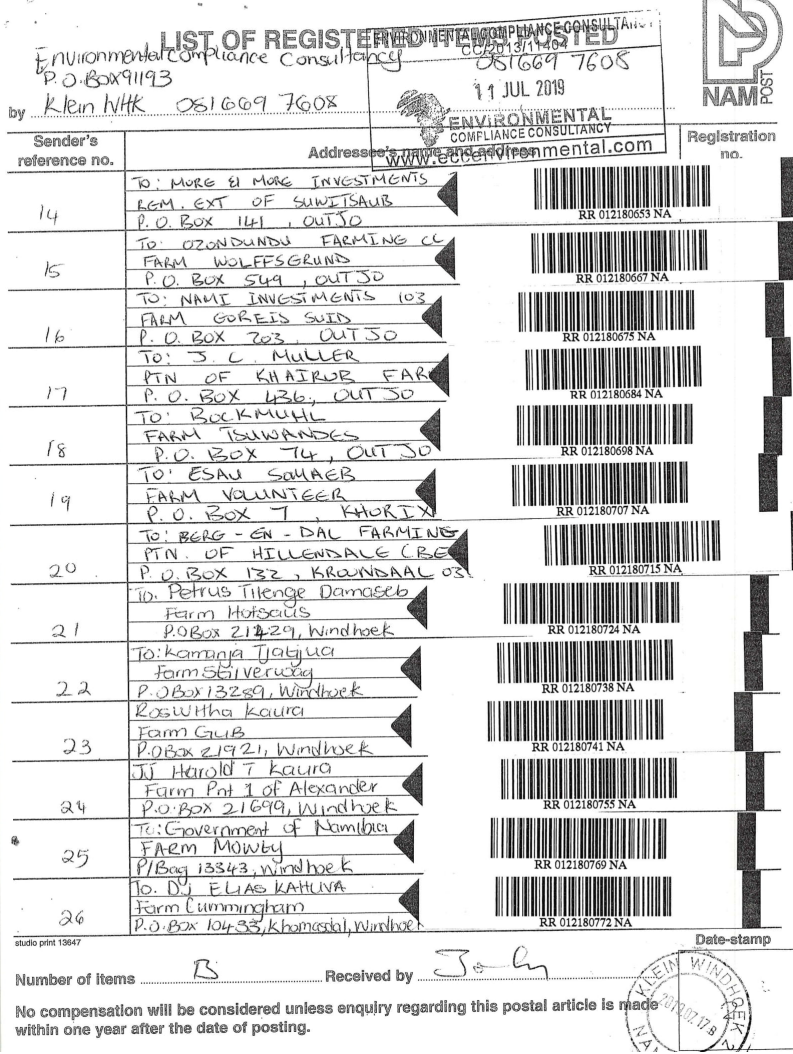 LIST OF REGISTERED ITEMS POSTED
Environmental Compliance Consultancy
P.O. Box 91193
by Klein WHK 081669 7608
ENVIRONMENTAL COMPLIANCE CONSULTANCY
CC/2013/11404
081669 7608
11 JUL 2019
ENVIRONMENTAL
COMPLIANCE CONSULTANCY
www.eccenvironmental.com
NAM POST
Sender's reference no. Addressee's name and address Registration no.
14
TO: MORE & MORE INVESTMENTS
REM. EXT OF SUWITSAUB
P. O. BOX 141, OUTJO
RR 012180653 NA
15
TO: OZONDUNDU FARMING CC
FARM WOLFFSGRUND
P. O. BOX 549, OUTJO
RR 012180667 NA
16
TO: NAMI INVESTMENTS 103
FARM GOREIS SUID
P. O. BOX 203, OUTJO
RR 012180675 NA
17
TO: J. C. MULLER
PTN OF KHAIROB FAR
P. O. BOX 436, OUTJO
RR 012180684 NA
18
TO: BOCKMUHL
FARM TSUWANDES
P. O. BOX 74, OUTJO
RR 012180698 NA
19
TO: ESAU SOMAEB
FARM VOLUNTEER
P. O. BOX 7, KHORIX
RR 012180707 NA
20
TO: BERG-EN-DAL FARMING
PTN. OF HILLENDALE (BE
P. O. BOX 132, KROUNDAAL 03
RR 012180715 NA
21
To. Petrus Tilenge Damaseb
Farm Hotsaus
P.O Box 21429, Windhoek
RR 012180724 NA
22
To: Kamanja Tjatjua
Farm Stilverwag
P.O Box 13289, Windhoek
RR 012180738 NA
23
Roswitha Kaura
Farm GUB
P.O Box 21921, Windhoek
RR 012180741 NA
24
JJ Harold T Kaura
Farm Pnt 1 of Alexander
P.O. Box 21699, Windhoek
RR 012180755 NA
25
To: Government of Namibia
FARM MOWEY
P/Bag 13343, Windhoek
RR 012180769 NA
26
To. DJ ELIAS KAHUVA
Farm Cummingham
P.O. Box 10433, Khomasdal, Windhoek
RR 012180772 NA
studio print 13647
Date-stamp
Number of items 13 Received by
No compensation will be considered unless enquiry regarding this postal article is made
within one year after the date of posting.
KLEIN WINDHOEK
2019.07.17